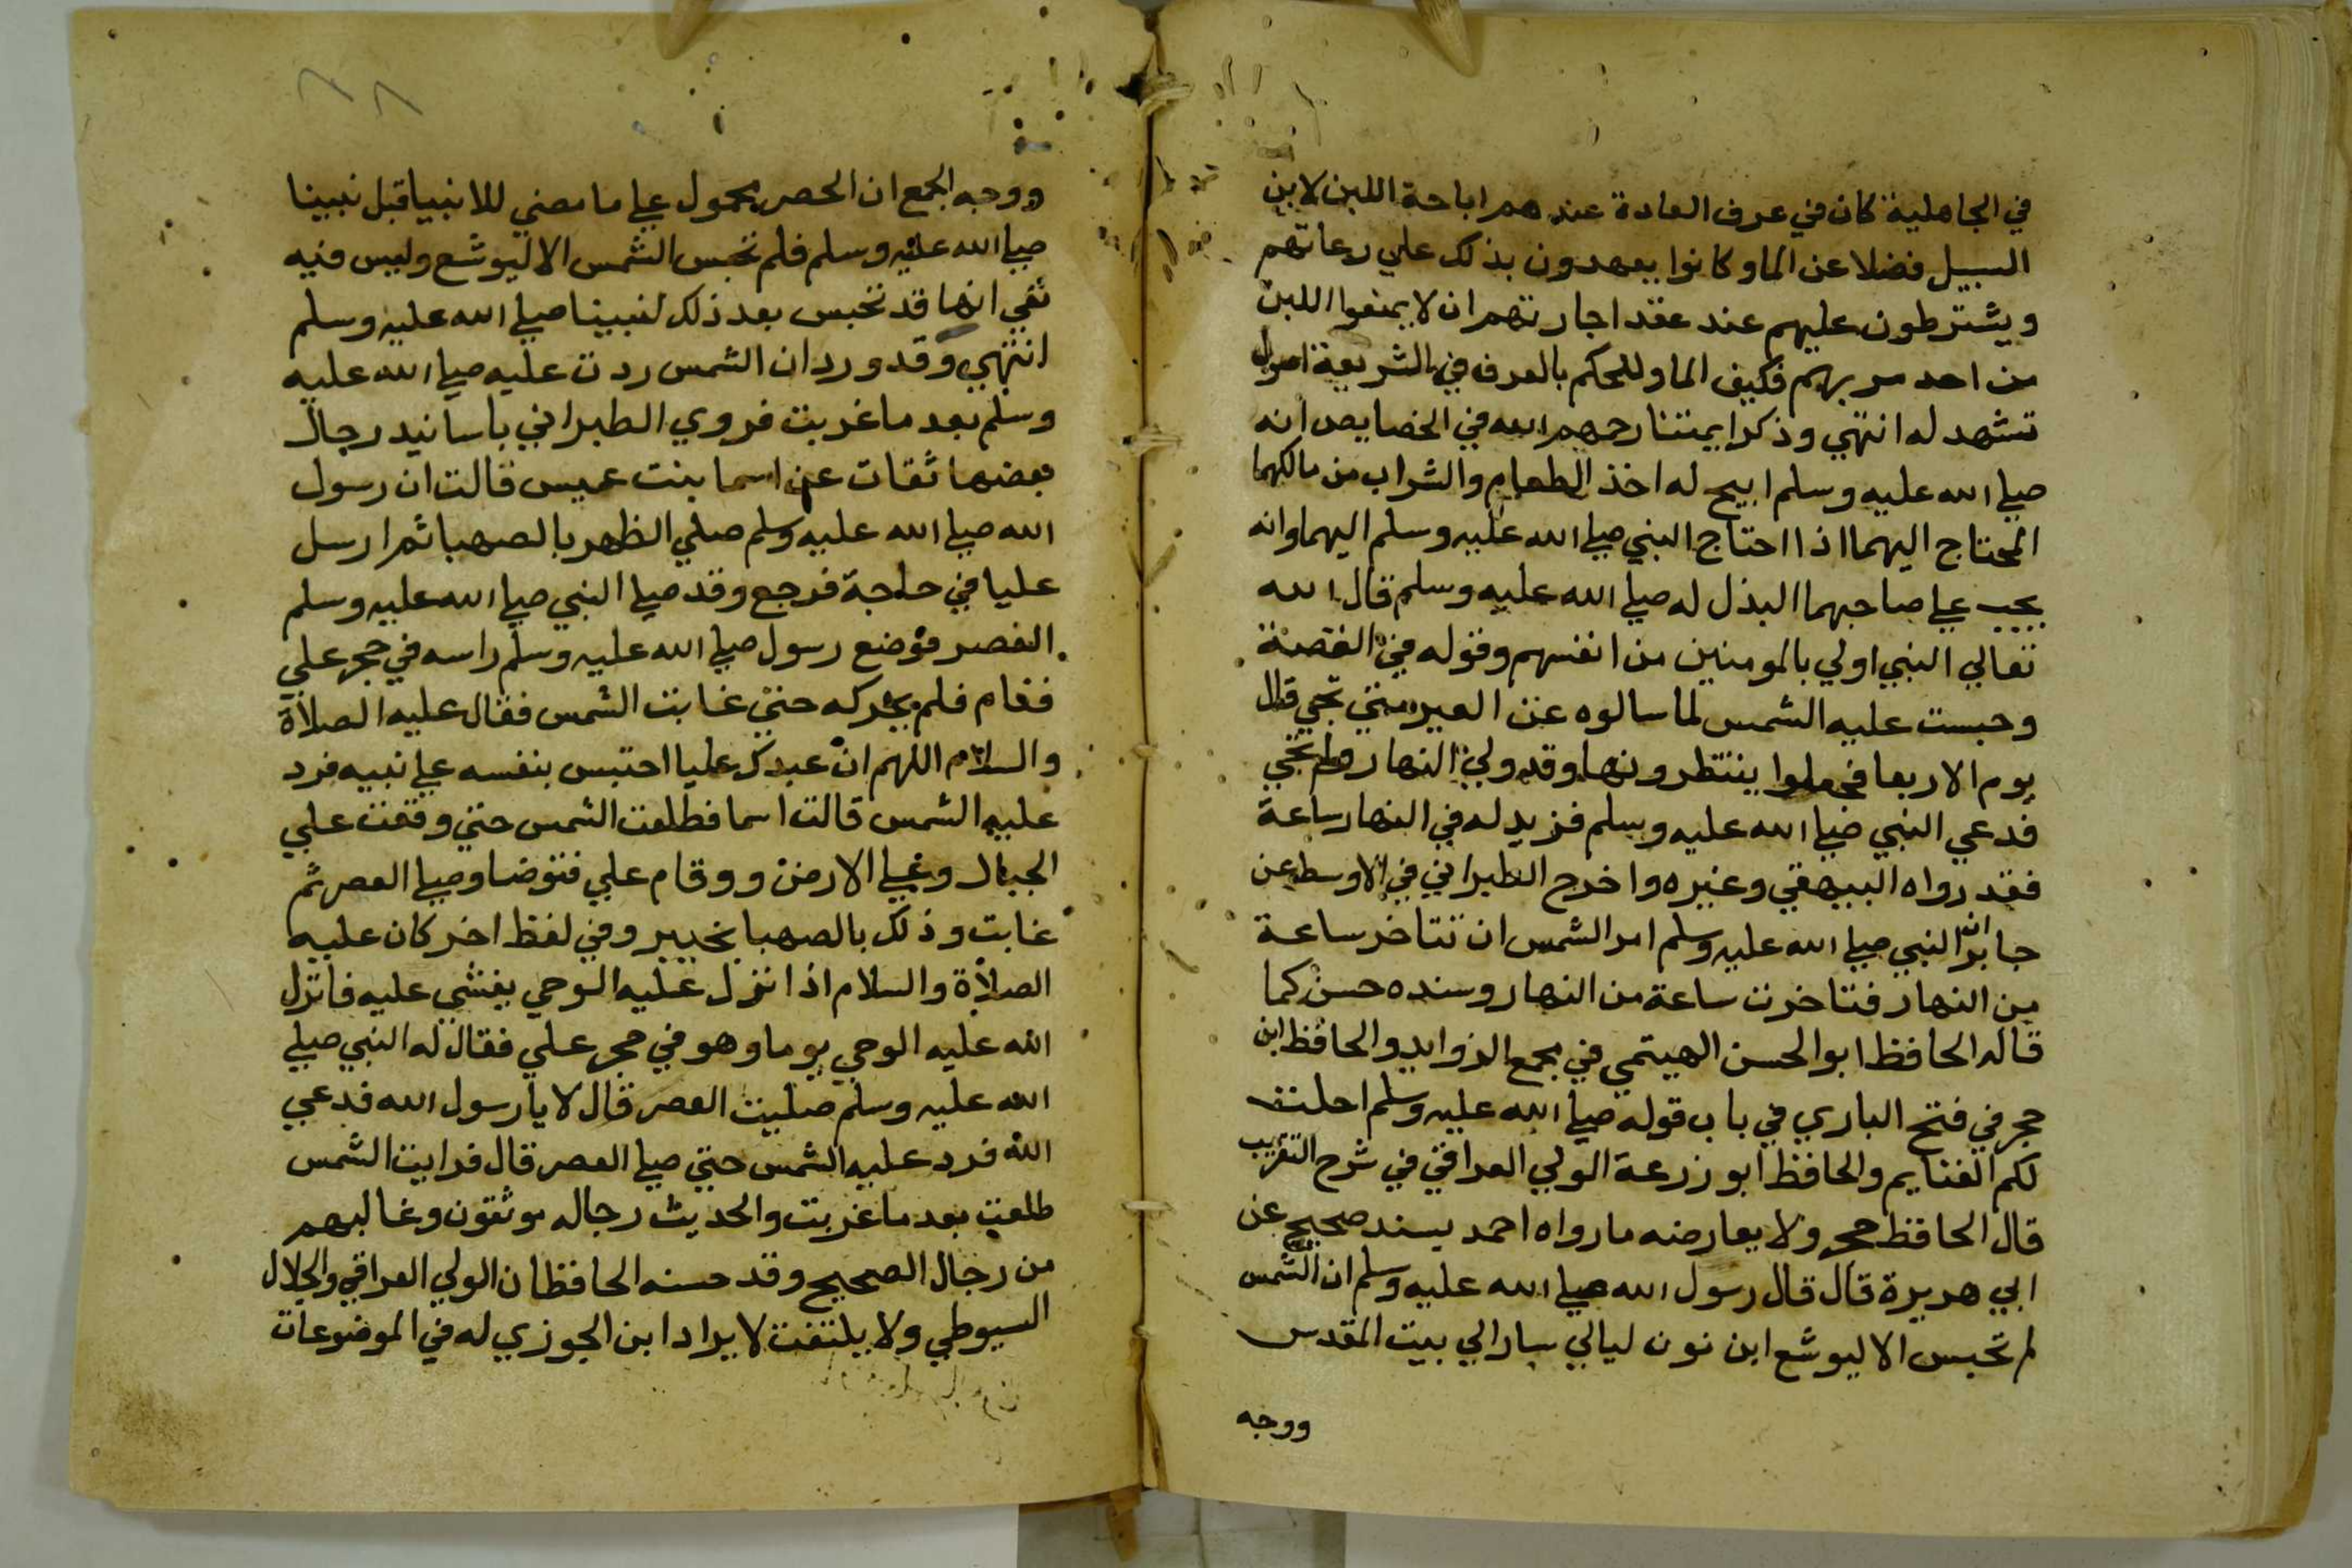 في الجاهلية كان في عرف العادة عندهم اباحة اللبن لابن
السبيل فضلا عن الما وكانوا يعهدون بذلك علي رعاتهم
ويشترطون عليهم عند عقد اجارتهم ان لا يمنعوا اللبن
من احد مر بهم فكيف الما وللحكم بالعرف في الشريعة اصول
تشهد له انتهي وذكر ايمتنا رحمهم الله في الخصايص انه
صلي الله عليه وسلم ابيح له اخذ الطعام والشراب من مالكهما
المحتاج اليهما اذا احتاج النبي صلي الله عليه وسلم اليهما وانه
يجب علي صاحبهما البذل له صلي الله عليه وسلم قال الله
تعالي النبي اولي بالمومنين من انفسهم وقوله في القصة
وحبست عليه الشمس لما سالوه عن العير متي تجي قال
يوم الاربعا فجعلوا ينتظرونها وقد ولي النهار ولم تجي
فدعي النبي صلي الله عليه وسلم فزيد له في النهار ساعة
فقد رواه البيهقي وغيره واخرج الطبراني في الاوسط عن
جابر ان النبي صلي الله عليه وسلم امر الشمس ان تتاخر ساعة
من النهار فتاخرت ساعة من النهار وسنده حسن كما
قاله الحافظ ابو الحسن الهيتمي في مجمع الزوايد والحافظ ابن
حجر في فتح الباري في باب قوله صلي الله عليه وسلم احلت
لكم الغنايم والحافظ ابو زرعة الولي العراقي في شرح التقريب
قال الحافظ حجر ولا يعارضه ما رواه احمد بسند صحيح عن
ابي هريرة قال قال رسول الله صلي الله عليه وسلم ان الشمس
لم تحبس الا ليوشع ابن نون ليالي سار الي بيت المقدس
ووجه
ووجه الجمع ان الحصر محمول علي ما مضي للانبيا قبل نبينا
صلي الله عليه وسلم فلم تحبس الشمس الا ليوشع وليس فيه
نفي انها قد تحبس بعد ذلك لنبينا صلي الله عليه وسلم
انتهي وقد ورد ان الشمس ردت عليه صلي الله عليه
وسلم بعد ما غربت فروي الطبراني باسانيد رجال
بعضها ثقات عن اسما بنت عميس قالت ان رسول
الله صلي الله عليه وسلم صلي الظهر بالصهبا ثم ارسل
عليا في حاجة فرجع وقد صلي النبي صلي الله عليه وسلم
العصر فوضع رسول صلي الله عليه وسلم راسه في حجر علي
فقام فلم يحركه حتي غابت الشمس فقال عليه الصلاة
والسلام اللهم ان عبدك عليا احتبس بنفسه علي نبيه فرد
عليه الشمس قالت اسما فطلعت الشمس حتي وقفت علي
الجبال وعلي الارض ووقام علي فتوضا وصلي العصر ثم
غابت وذلك بالصهبا بخيبر وفي لفظ اخر كان عليه
الصلاة والسلام اذا نزل عليه الوحي يغشي عليه فانزل
الله عليه الوحي يوما وهو في حجر علي فقال له النبي صلي
الله عليه وسلم صليت العصر قال لا يا رسول الله فدعي
الله فرد عليه الشمس حتي صلي العصر قال فرايت الشمس
طلعت بعد ما غربت والحديث رجاله موثقون وغالبهم
من رجال الصحيح وقد حسنه الحافظان الولي العراقي والجلال
السيوطي ولا يلتفت لايراد ابن الجوزي له في الموضوعات